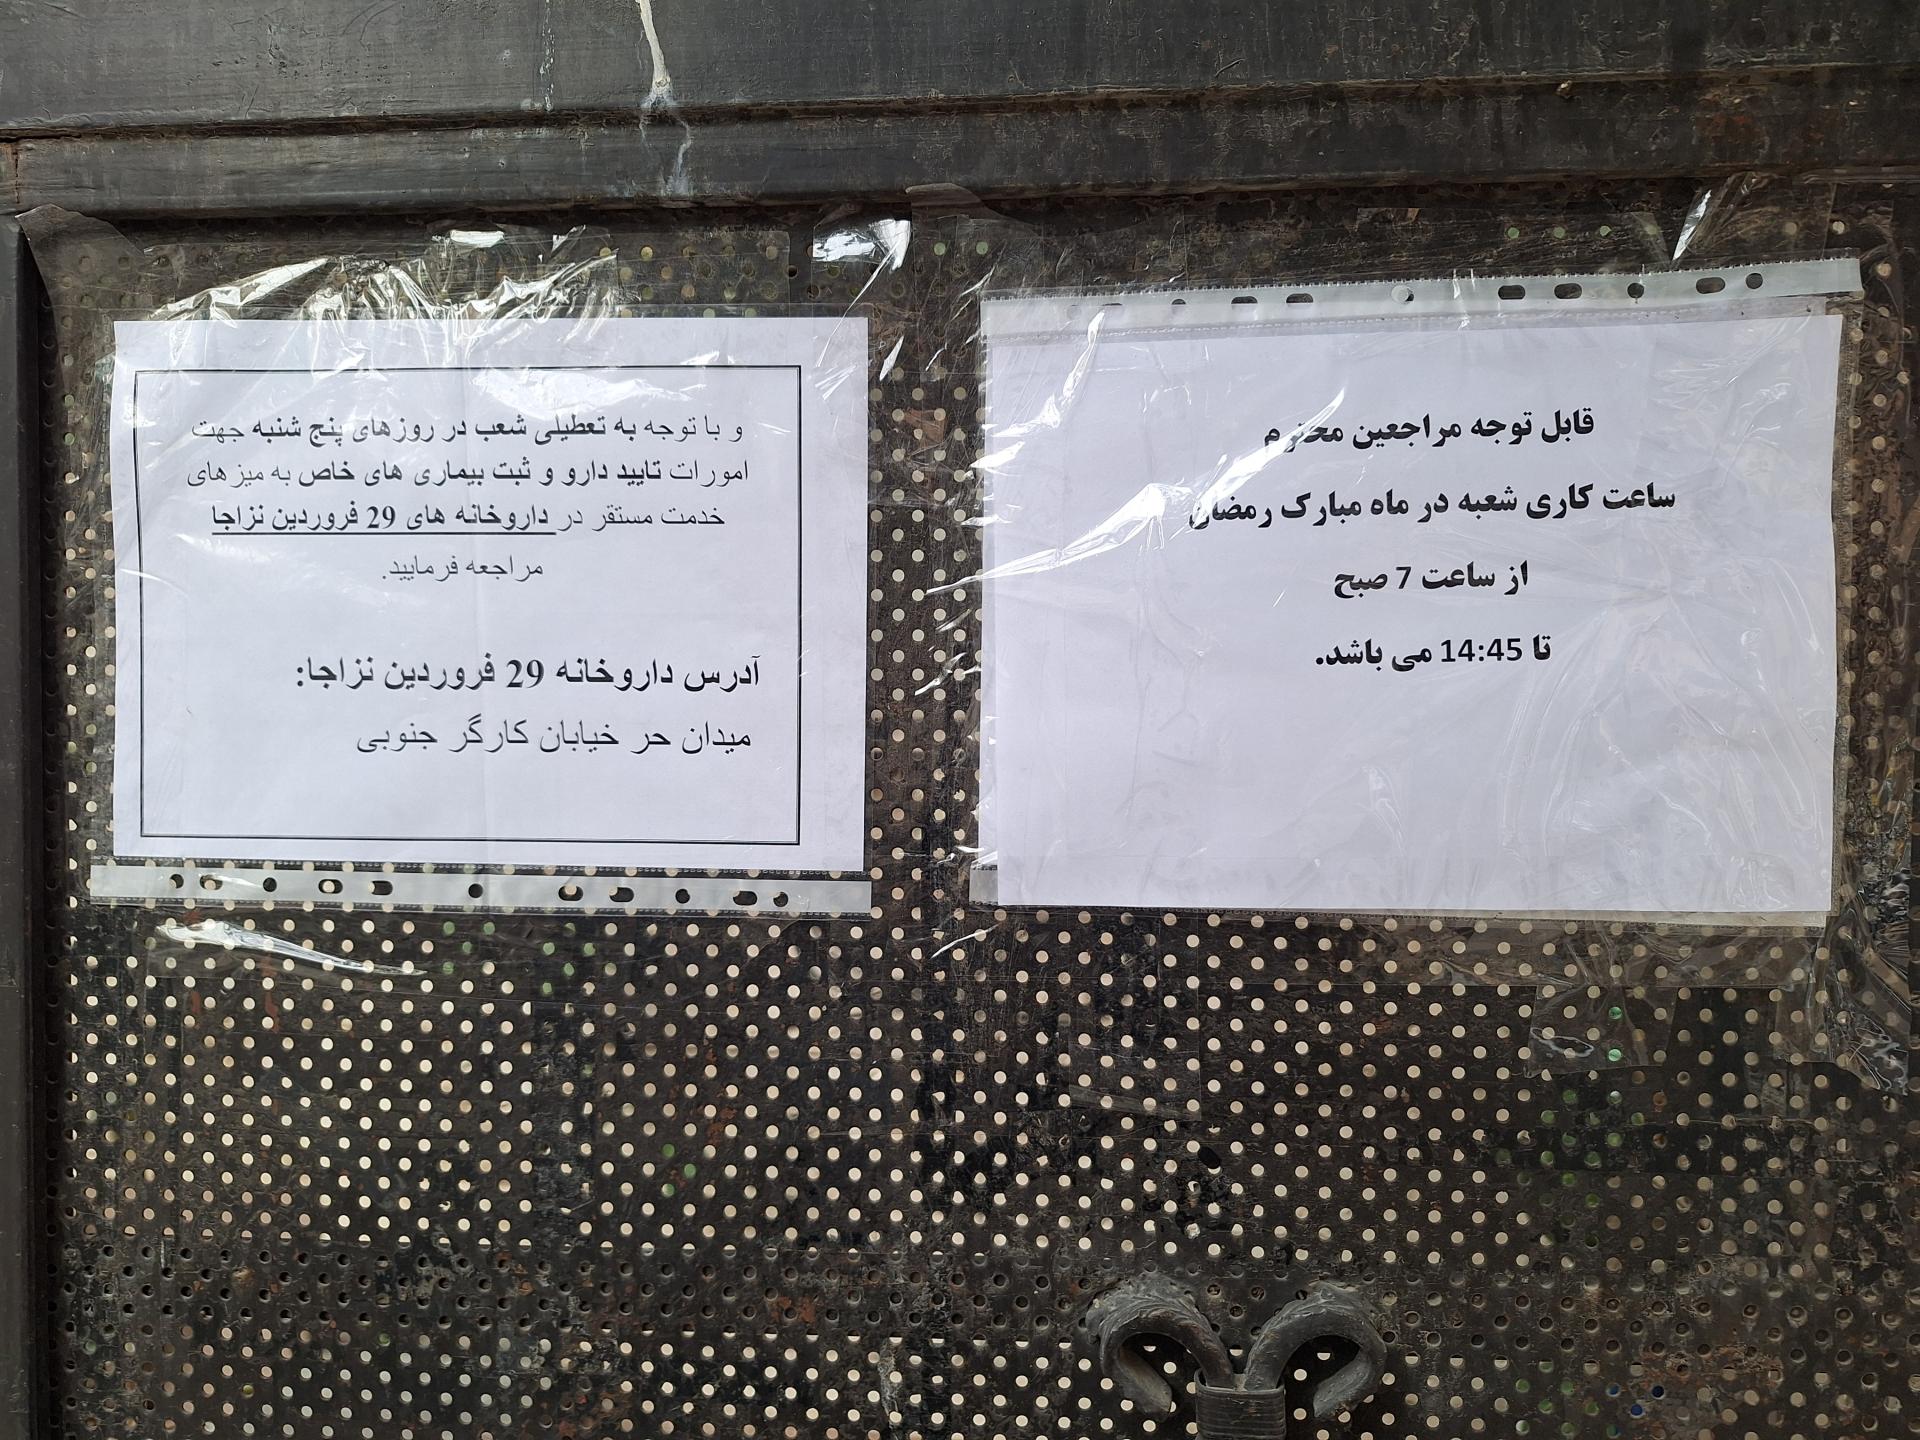 قابل توجه مراجعین محترم
ساعت کاری شعبه در ماه مبارک رمضان
از ساعت 7 صبح
تا 14:45 می باشد.
و با توجه به تعطیلی شعب در روزهای پنج شنبه جهت
امورات تایید دارو و ثبت بیماری های خاص به میزهای
خدمت مستقر در داروخانه های 29 فروردین نزاجا
مراجعه فرمایید.
آدرس داروخانه 29 فروردین نزاجا:
میدان حر خیابان کارگر جنوبی